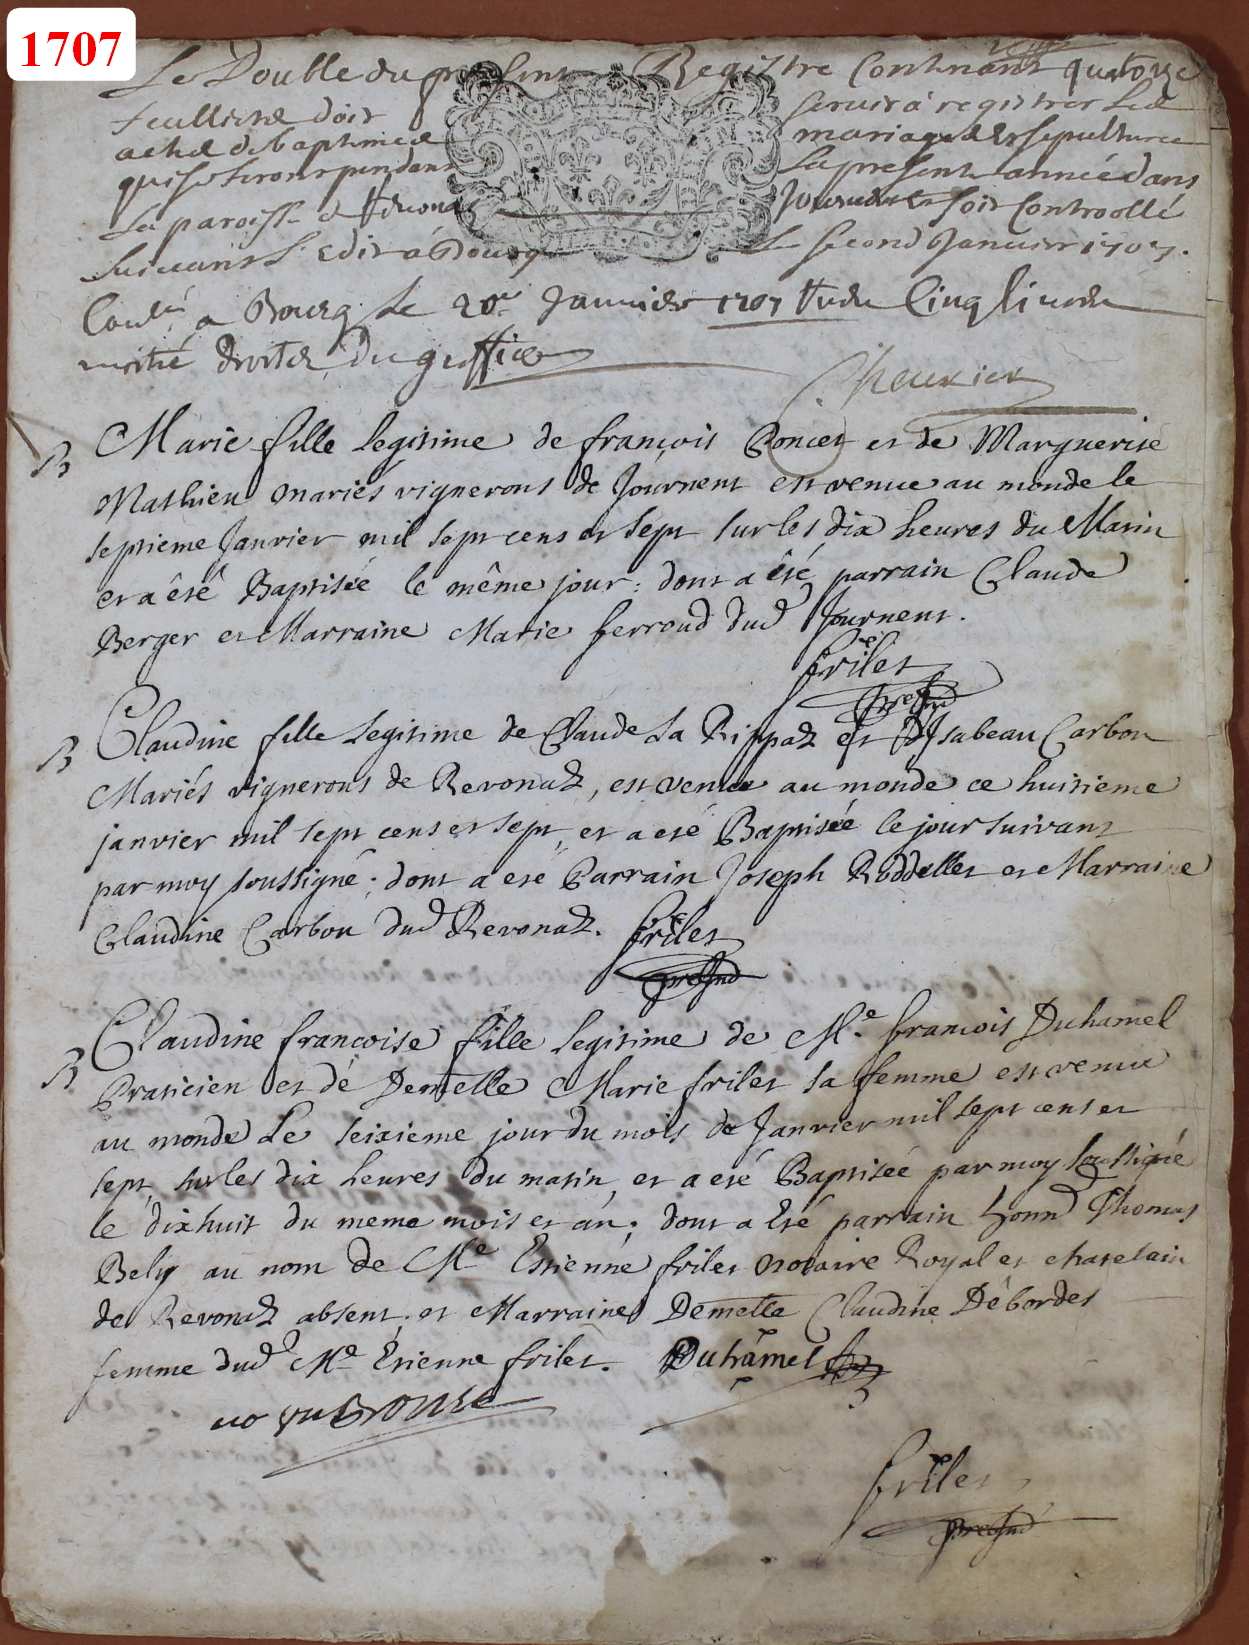 1707
Le Double du present Registre Contenant quatorze
feuillets doit servir à registrer Les
actes de baptimes mariages et sepultures
qui se feront pendant La presente année dans
La paroisse de Revonas soit Controollé
suivant L'Edit à Bourg Le second Janvier 1707.
à Bourg Le 20e Janvier 1707 Cinq livres
moitié Droits du greffier
B Marie fille legitime de françois Poncet et de Marguerite
Mathieu mariés vignerons de Journent est venue au monde le
septieme Janvier mil sept cens et sept sur les dix heures du Matin
et a êtê Baptisée le même jour : dont a êté parrain Claude
Berger et Marraine Marie ferroud dud Journent.
frilet
B Claudine fille legitime de Claude La Rippaz et d'Isabeau Carbon
Mariés vignerons de Revonaz, est venue au monde ce huitieme
janvier mil sept cens et sept, et a eté Baptisée le jour suivant
par moy soussigné ; dont a eté Parrain Joseph Roddellet et Marraine
Claudine Carbon dud Revonaz. frilet
B Claudine françoise fille legitime de Me. françois Duhamel
Praticien et de Demelle Marie frilet sa femme est venue
au monde Le seixieme jour du mois de Janvier mil sept cens et
sept, sur les dix heures du matin, et a eté Baptisée par moy soussigné
le dixhuit du meme mois et an ; dont a Eté parrain honnd Thomas
Bely au nom de Me Estienne frilet notaire Royal et chatelain
de Revonaz absent, et Marraine Demelle Claudine Débordes
femme dud Me Etienne frilet. Duhamel
frilet